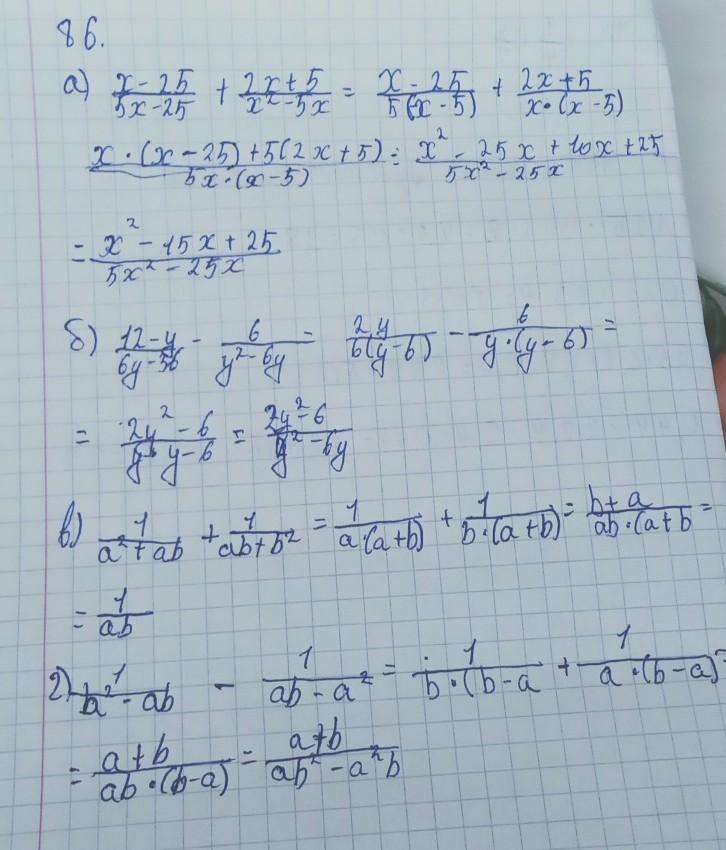 86.
а) (x-25)/(5x-25) + (2x+5)/(x²-5x) = (x-25)/(5(x-5)) + (2x+5)/(x·(x-5))
(x·(x-25)+5(2x+5))/(5x·(x-5)) = (x²-25x+10x+25)/(5x²-25x)
= (x²-15x+25)/(5x²-25x)
б) (12-y)/(6y-36) - 6/(y²-6y) = 2y/(6(y-6)) - 6/(y·(y-6)) =
= (2y²-6)/(y y-6) = (2y²-6)/(y²-6y)
в) 1/(a²+ab) + 1/(ab+b²) = 1/(a·(a+b)) + 1/(b·(a+b)) = (b+a)/(ab·(a+b =
= 1/ab
г) 1/(b²-ab) - 1/(ab-a²) = 1/(b·(b-a + 1/(a·(b-a)) =
= (a+b)/(ab·(b-a)) = (a+b)/(ab²-a²b)